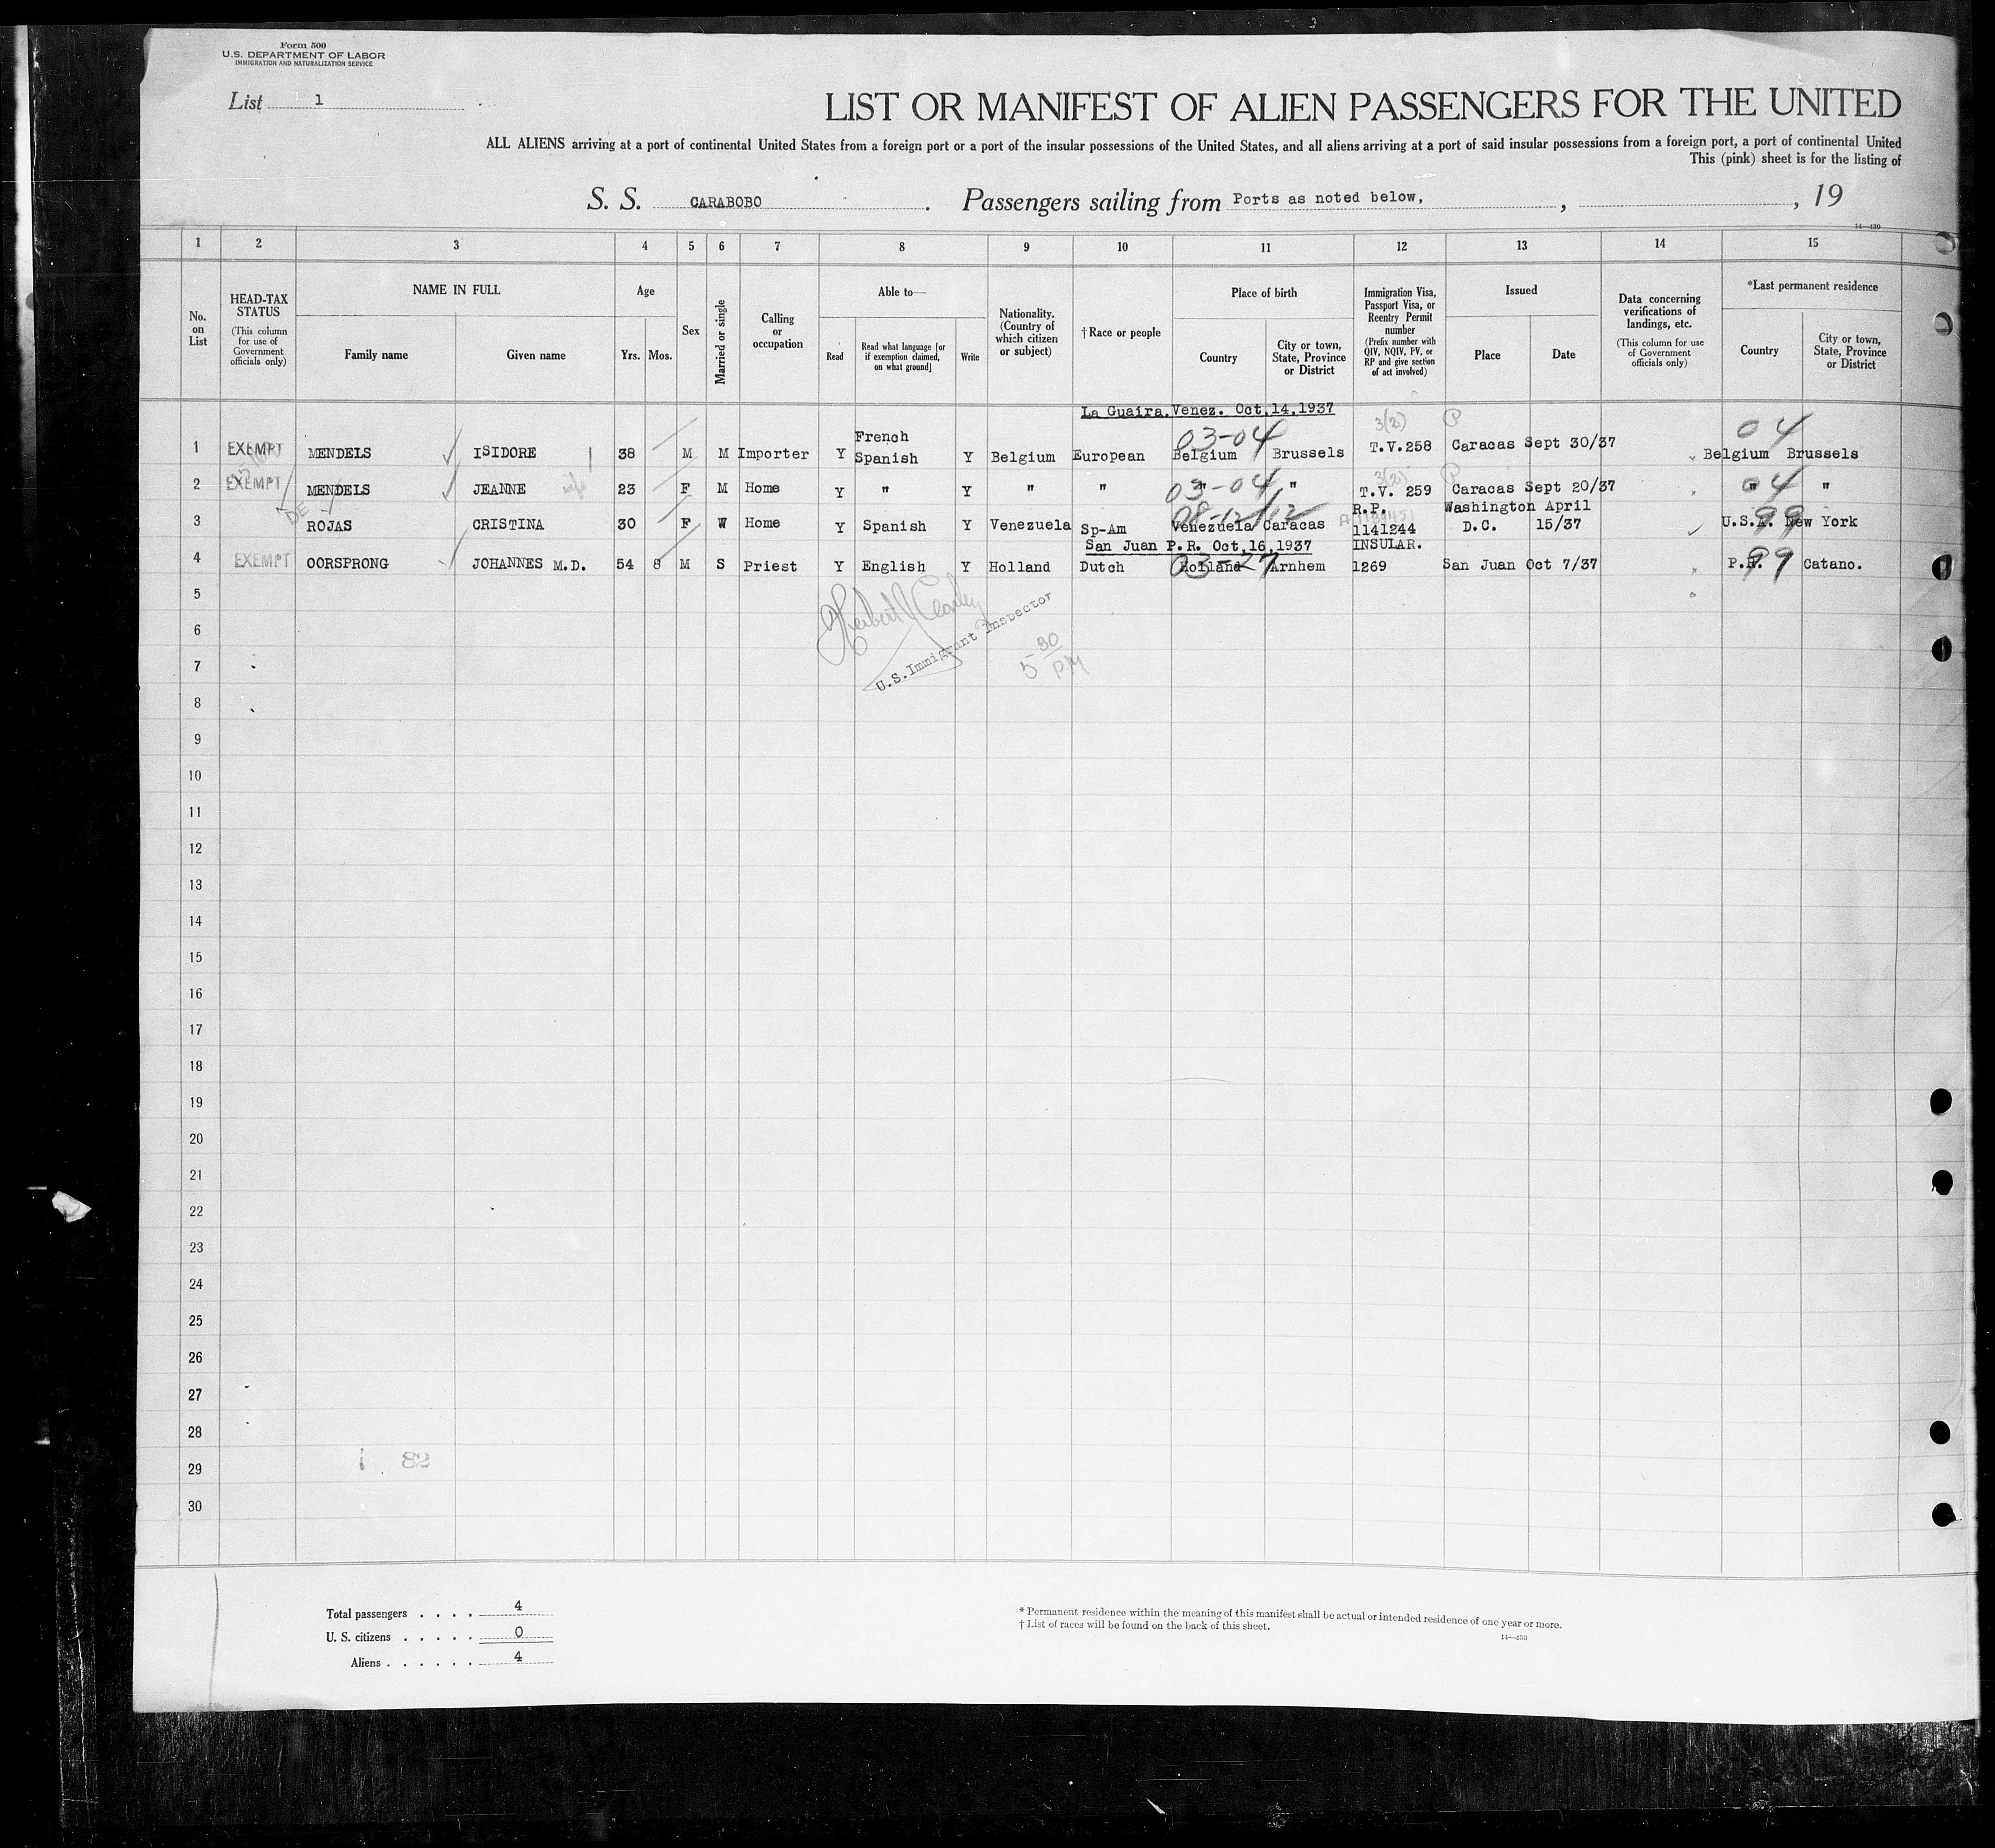 3
Form 500
U.S. DEPARTMENT OF LABOR
IMMIGRATION AND NATURALIZATION SERVICE
List 1
LIST OR MANIFEST OF ALIEN PASSENGERS FOR THE UNITED
ALL ALIENS arriving at a port of continental United States from a foreign port or a port of the insular possessions of the United States, and all aliens arriving at a port of said insular possessions from a foreign port, a port of continental United
This (pink) sheet is for the listing of
S. S. CARABOBO . Passengers sailing from Ports as noted below, , , 19
14—430
1 2 3 4 5 6 7 8 9 10 11 12 13 14 15
No. on List
HEAD-TAX STATUS
(This column for use of Government officials only)
NAME IN FULL
Family name Given name
Age
Yrs. Mos.
Sex
Married or single
Calling or occupation
Able to—
Read
Read what language [or if exemption claimed, on what ground]
Write
Nationality. (Country of which citizen or subject)
† Race or people
Place of birth
Country
City or town, State, Province or District
Immigration Visa, Passport Visa, or Reentry Permit number
(Prefix number with QIV, NQIV, PV, or RP and give section of act involved)
Issued
Place Date
Data concerning verifications of landings, etc.
(This column for use of Government officials only)
*Last permanent residence
Country
City or town, State, Province or District
La Guaira.Venez. Oct.14.1937
03-04 3(2) P 04
1 EXEMPT MENDELS ISIDORE 38 M M Importer Y French Spanish Y Belgium European Belgium Brussels T.V.258 Caracas Sept 30/37 Belgium Brussels
03-04 3(2) P 04
2 EXEMPT MENDELS JEANNE wife 23 F M Home Y " Y " " " " T.V. 259 Caracas Sept 20/37 " "
08-12/12 99
3 ROJAS CRISTINA 30 F W Home Y Spanish Y Venezuela Sp-Am Venezuela Caracas R.P. 1141244 Washington D.C. April 15/37 U.S.A. New York
San Juan P.R. Oct.16.1937 INSULAR.
03-27 99
4 EXEMPT OORSPRONG JOHANNES M.D. 54 8 M S Priest Y English Y Holland Dutch Holland Arnhem 1269 San Juan Oct 7/37 P.R. Catano.
5
U.S.Immigrant Inspector
6
5 30 PM
7
8
9
10
11
12
13
14
15
16
17
18
19
20
21
22
23
24
25
26
27
28
82
29
30
Total passengers . . . . 4
U. S. citizens . . . . . 0
Aliens . . . . . . 4
* Permanent residence within the meaning of this manifest shall be actual or intended residence of one year or more.
† List of races will be found on the back of this sheet.
14—430